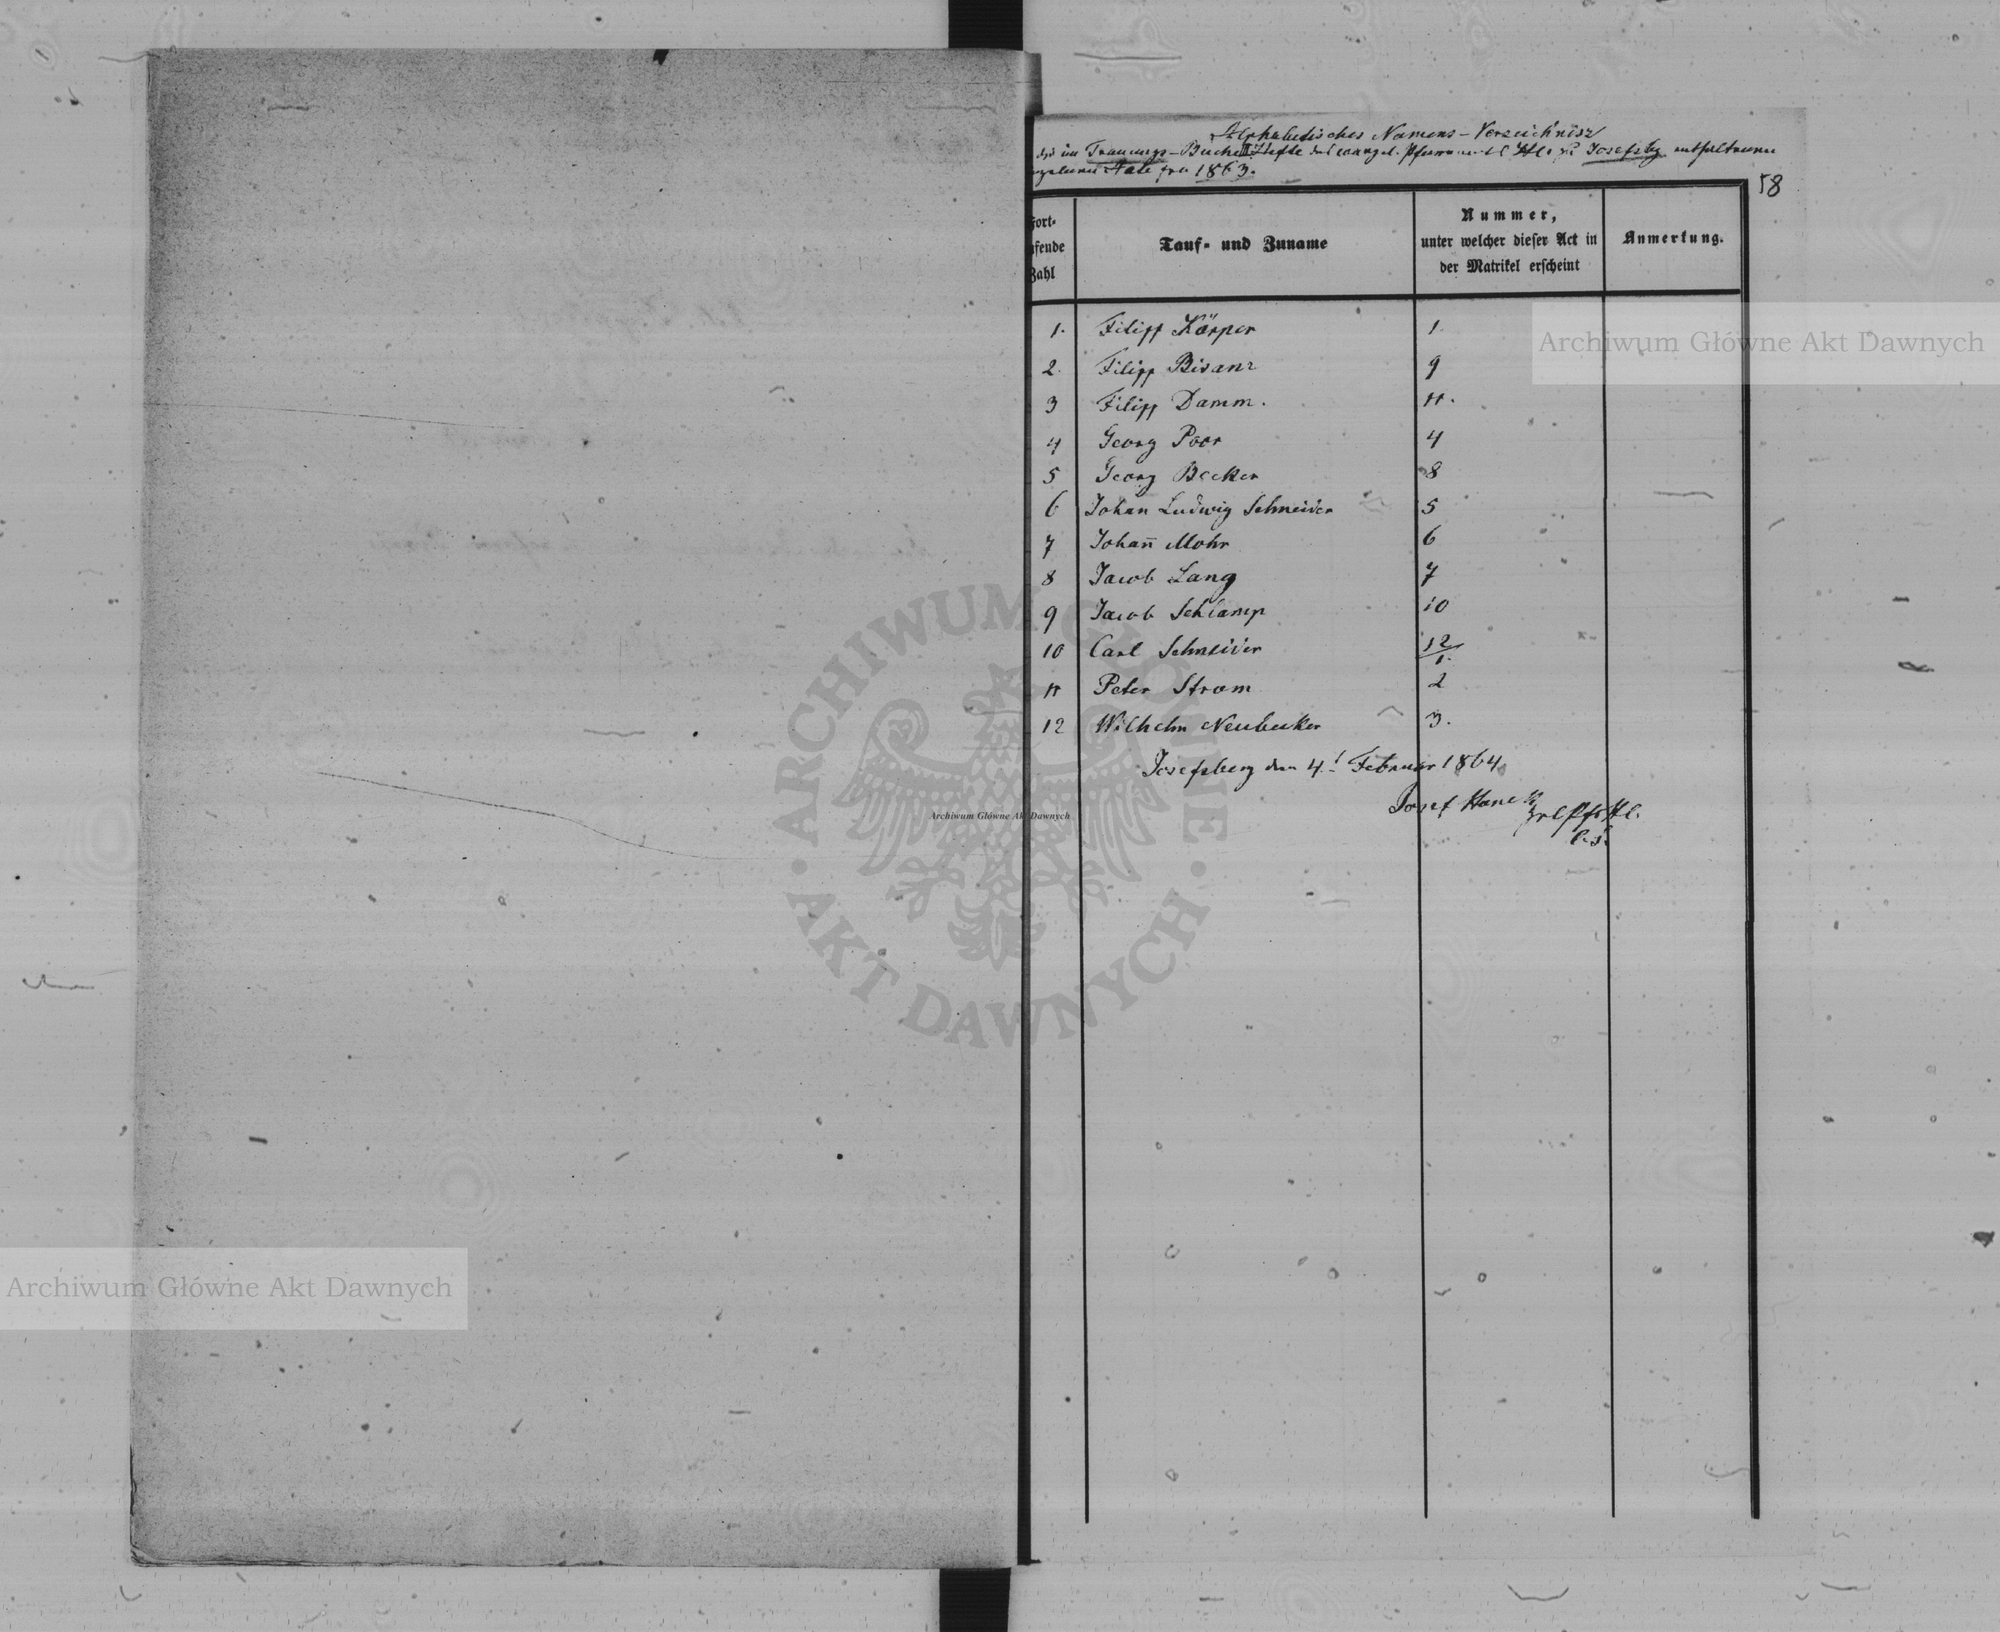 Alphabetisches Namens-Verzeichnisz
im Trauungs-Buche II Hefte evangel. zu Josefsbg enthaltenen
Acte pro 1863.
58
Fort-
ufende
Zahl
Tauf- und Zuname
Nummer,
unter welcher dieser Act in
der Matrikel erscheint
Anmerkung.
1. Filipp Körper 1
2. Filipp Bisanz 9
3 Filipp Damm. 11.
4 Georg Poor 4
5 Georg Becker 8
6 Johan Ludwig Schneider 5
7 Johan̅ Mohr 6
8 Jacob Lang 7
9 Jacob Schlamp 10
10 Carl Schneider 12/1.
11 Peter Strom 2
12 Wilhelm Neubecker 3.
Josefsberg den 4t Februar 1864
Josef Hanek
Archiwum Główne Akt Dawnych
ARCHIWUM GŁÓWNE · AKT DAWNYCH ·
Archiwum Główne Akt Dawnych
Archiwum Główne Akt Dawnych